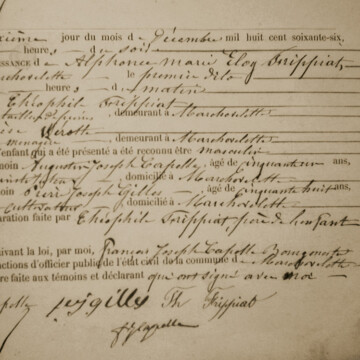 xième jour du mois de Décembre mil huit cent soixante-six,
heures de soir
issance de Alphonse Marie Eloy Frippiat,
Marchovelette le premier de ce
heures du matin
Théophil Frippiat
, demeurant à Marchovelette
Wérotte
ménagère, demeurant à Marchovelette
l'enfant qui a été présenté a été reconnu être masculin
moin Augustin Joseph Capelle, âgé de cinquante un ans,
, domicilié à Marchovelette
moin Joseph Gilles, âgé de Cinquante huit ans,
Cultivateur, domicilié à Marchovelette
aration faite par Théophil Frippiat, père de l'enfant
ivant la loi, par moi, François Joseph Capelle Bourgmestre
nctions d'officier public de l'état civil de la commune de Marchovelette
re faite aux témoins et déclarant que ont signé avec moi
apelle Gilles Th Frippiat
FJ Capelle